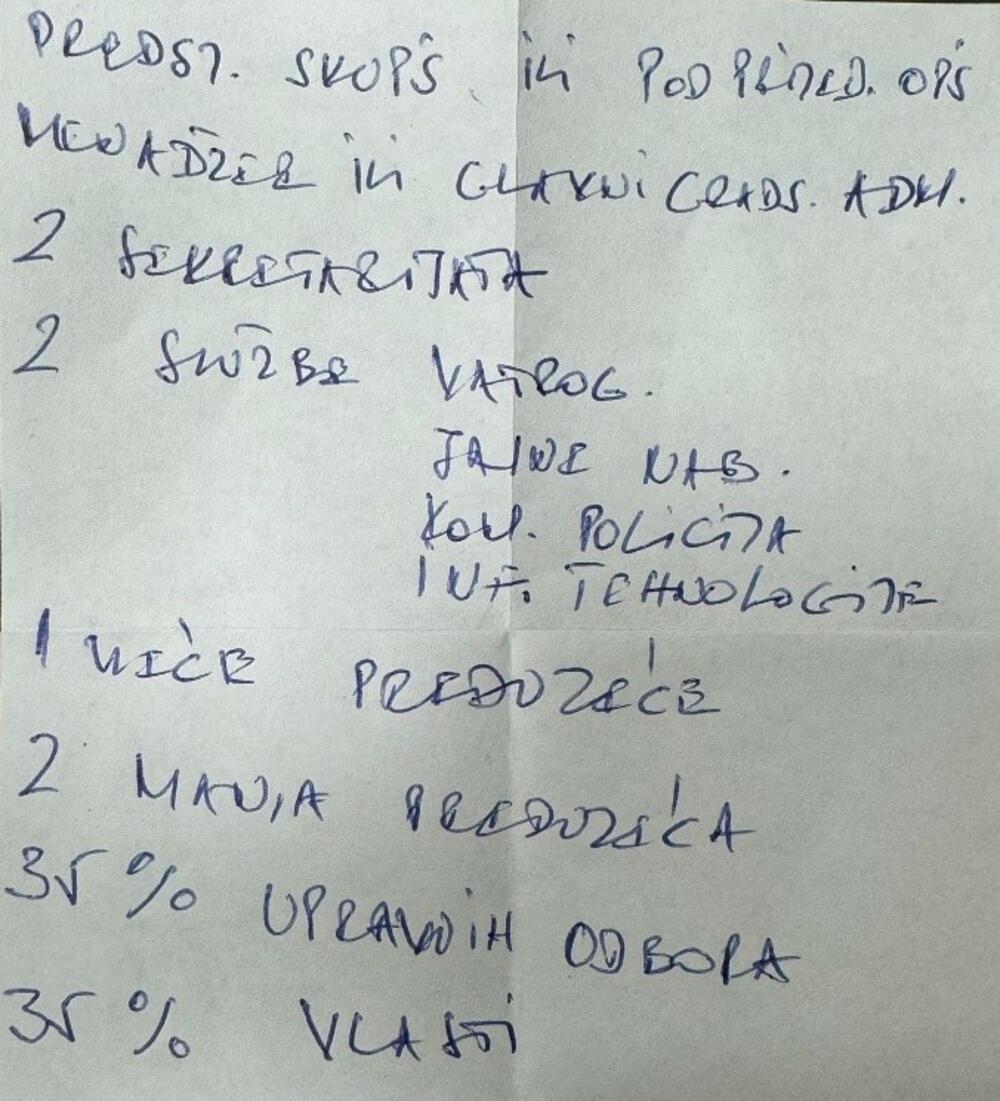 PREDST. SKUPŠ. ili PODPREDS. OPŠ
MENADŽER ili GLAVNI GRADS. ADM.
2 SEKRETARIJATA
2 SLUŽBE VATROG.
JAVNE NAB.
KOM. POLICIJA
INF. TEHNOLOGIJE
1 VEĆE PREDUZEĆE
2 MANJA PREDUZEĆA
35 % UPRAVNIH ODBORA
35 % VLASTI